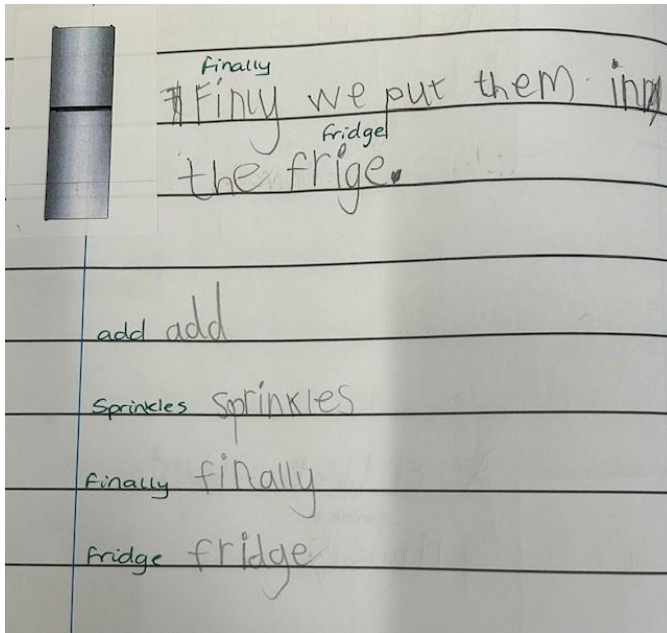 Finally
Finly we put them in
fridge
the frige.
add add
Sprinkles sprinkles
finally finally
fridge fridge